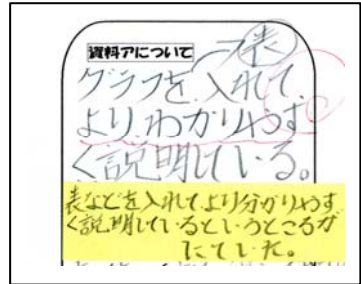 資料アについて
表
グラフを入れて、
より、わかりやす
く説明している。
表などを入れてより分かりやす
く説明しているというところが
にていた。